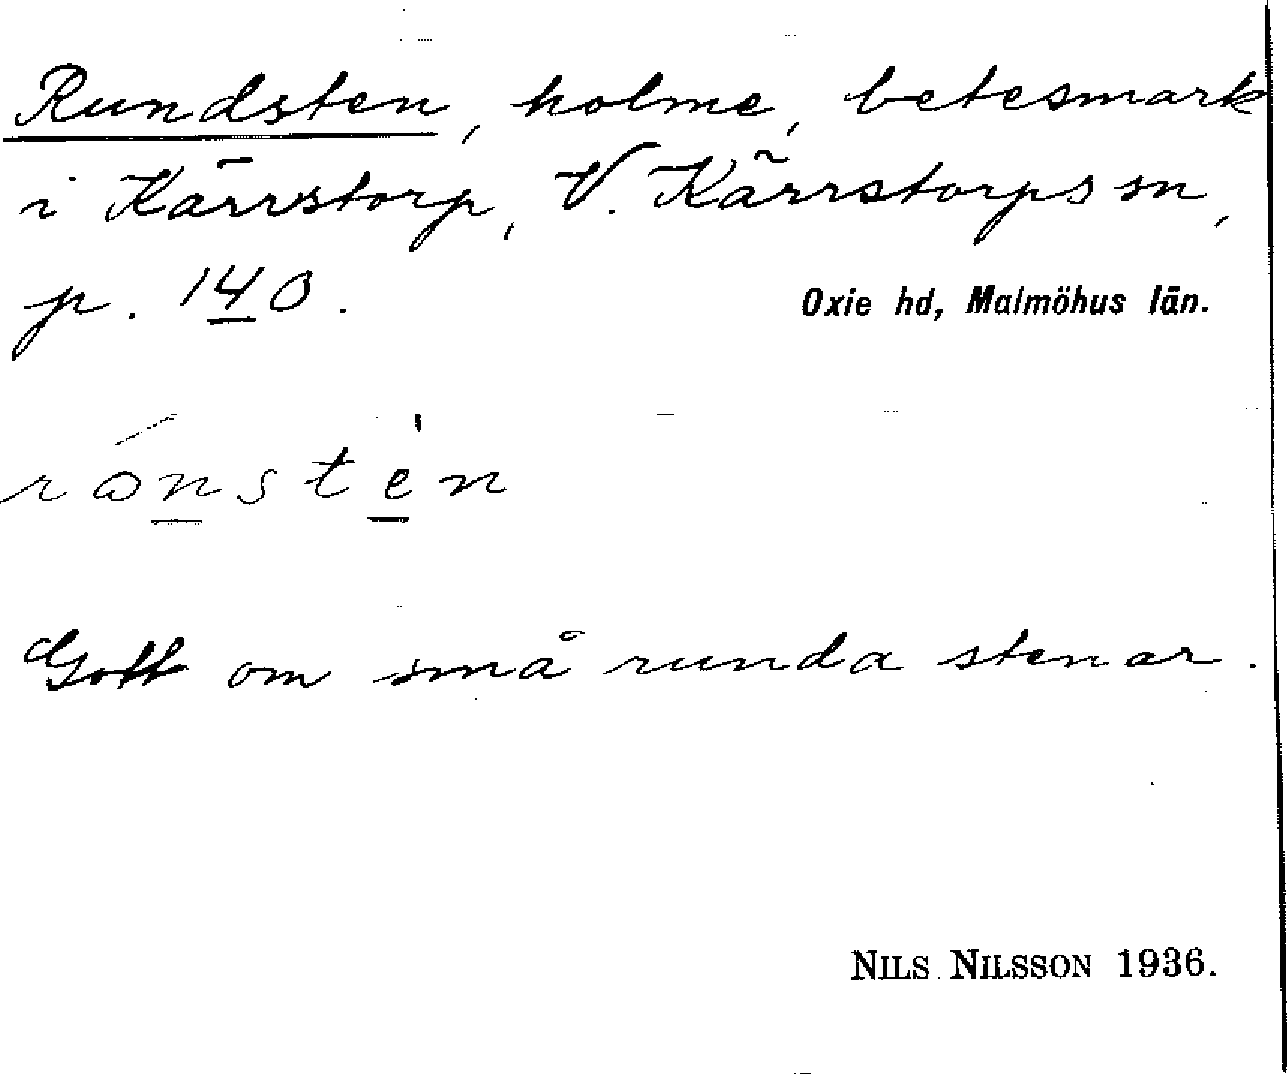 Rundsten, holme, betesmark
i Kärrstorp, V. Kärrstorps sn,
p. 140.
Oxie hd, Malmöhus län.
rónstèn
Gott om små runda stenar.
NILS NILSSON 1936.